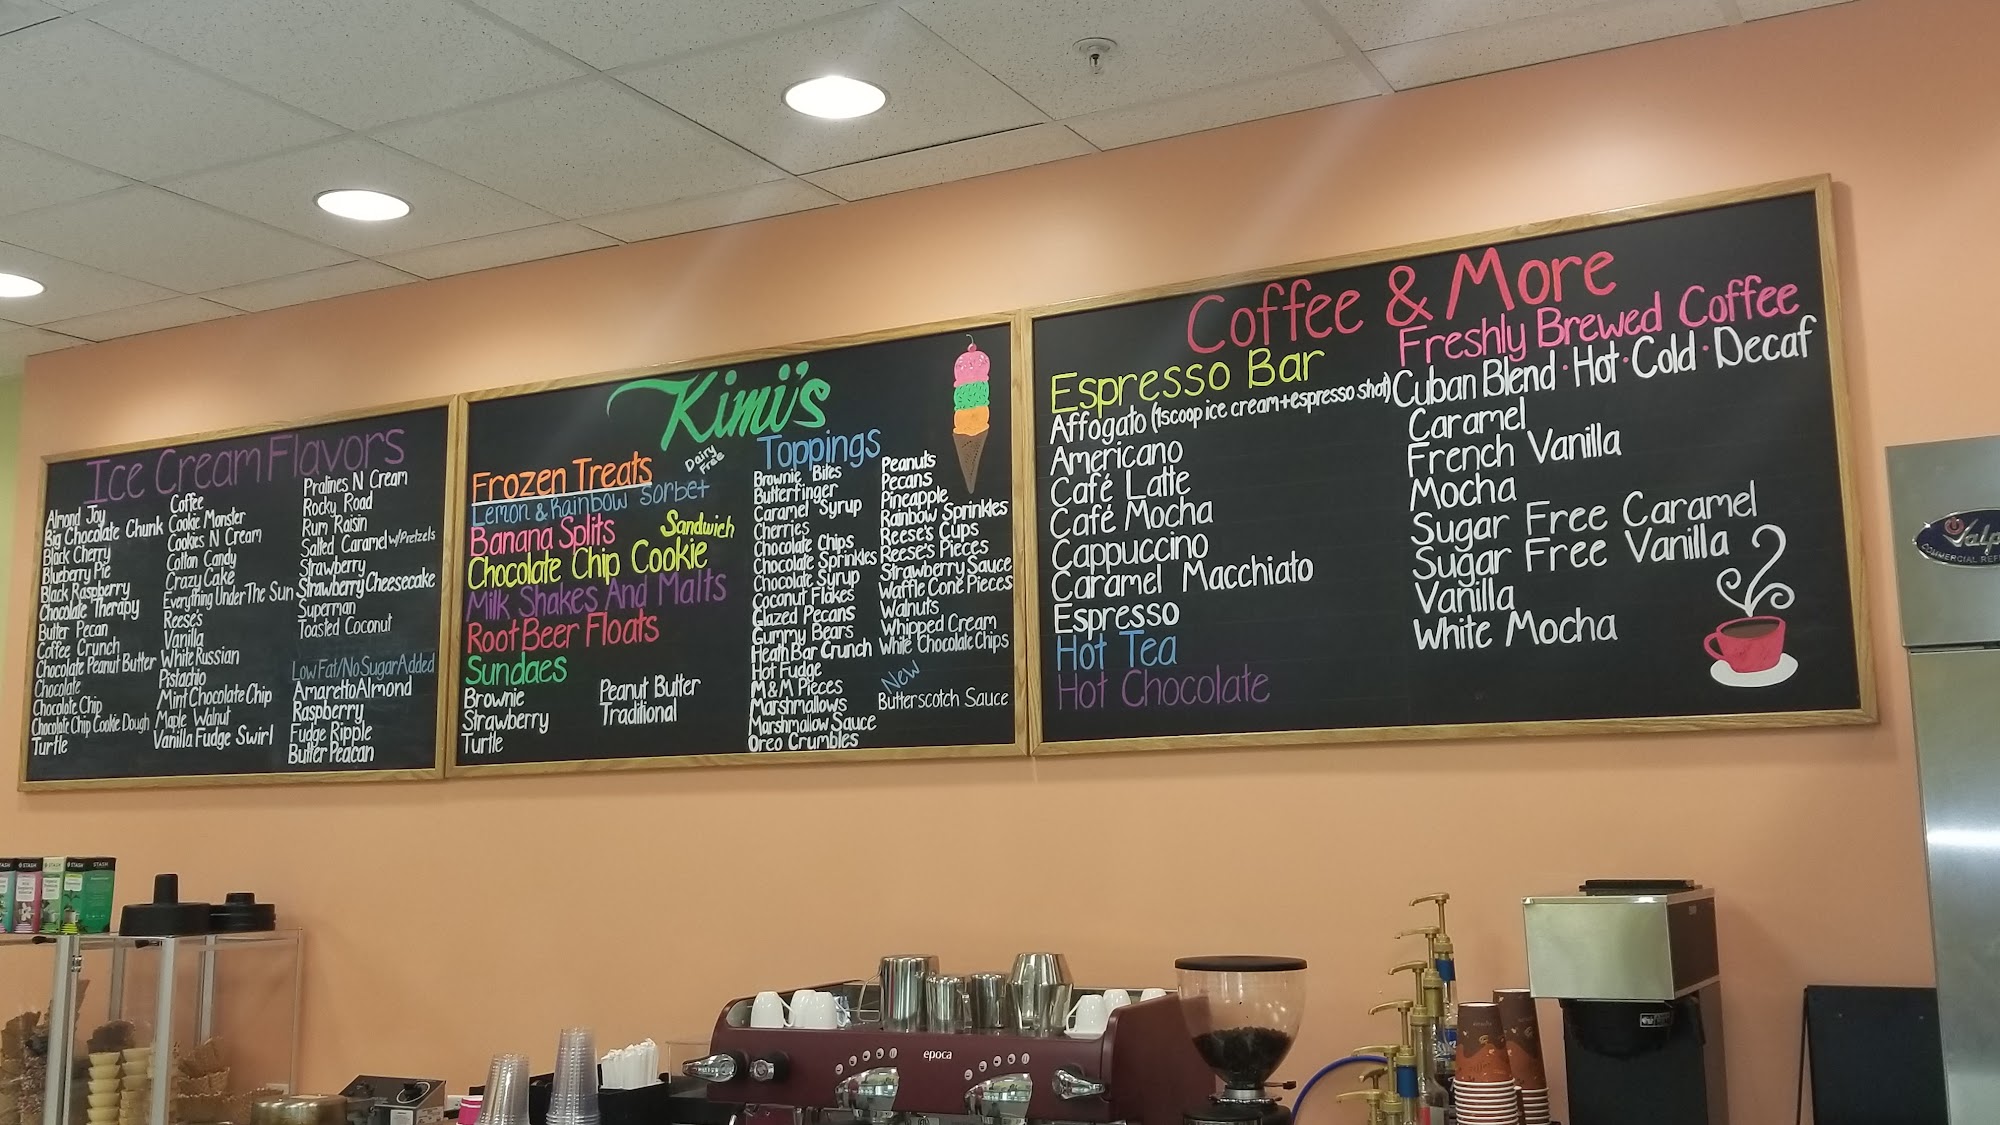 Ice Cream Flavors
Almond Joy
Big Chocolate Chunk
Black Cherry
Blueberry Pie
Black Raspberry
Chocolate Therapy
Butter Pecan
Coffee Crunch
Chocolate Peanut Butter
Chocolate
Chocolate Chip
Chocolate Chip Cookie Dough
Turtle
Coffee
Cookie Monster
Cookies N Cream
Cotton Candy
Crazy Cake
Everything Under The Sun
Reese's
Vanilla
White Russian
Pistachio
Mint Chocolate Chip
Maple Walnut
Vanilla Fudge Swirl
Pralines N Cream
Rocky Road
Rum Raisin
Salted Caramel w/Pretzels
Strawberry
Strawberry Cheesecake
Superman
Toasted Coconut
Low Fat/No Sugar Added
Amaretto Almond
Raspberry
Fudge Ripple
Butter Peacan
Kimi's
Frozen Treats
Dairy
Free
Lemon & Rainbow Sorbet
Banana Splits
Sandwich
Chocolate Chip Cookie
Milk Shakes And Malts
Root Beer Floats
Sundaes
Brownie
Strawberry
Turtle
Peanut Butter
Traditional
Toppings
Brownie Bites
Butterfinger
Caramel Syrup
Cherries
Chocolate Chips
Chocolate Sprinkles
Chocolate Syrup
Coconut Flakes
Glazed Pecans
Gummy Bears
Heath Bar Crunch
Hot Fudge
M&M Pieces
Marshmallows
Marshmallow Sauce
Oreo Crumbles
Peanuts
Pecans
Pineapple
Rainbow Sprinkles
Reese's Cups
Reese's Pieces
Strawberry Sauce
Waffle Cone Pieces
Walnuts
Whipped Cream
White Chocolate Chips
New
Butterscotch Sauce
Coffee & More
Espresso Bar
Affogato (1scoop ice cream+espresso shot)
Americano
Café Latte
Café Mocha
Cappuccino
Caramel Macchiato
Espresso
Hot Tea
Hot Chocolate
Freshly Brewed Coffee
Cuban Blend · Hot · Cold · Decaf
Caramel
French Vanilla
Mocha
Sugar Free Caramel
Sugar Free Vanilla
Vanilla
White Mocha
STASH
STASH
STASH
epoca